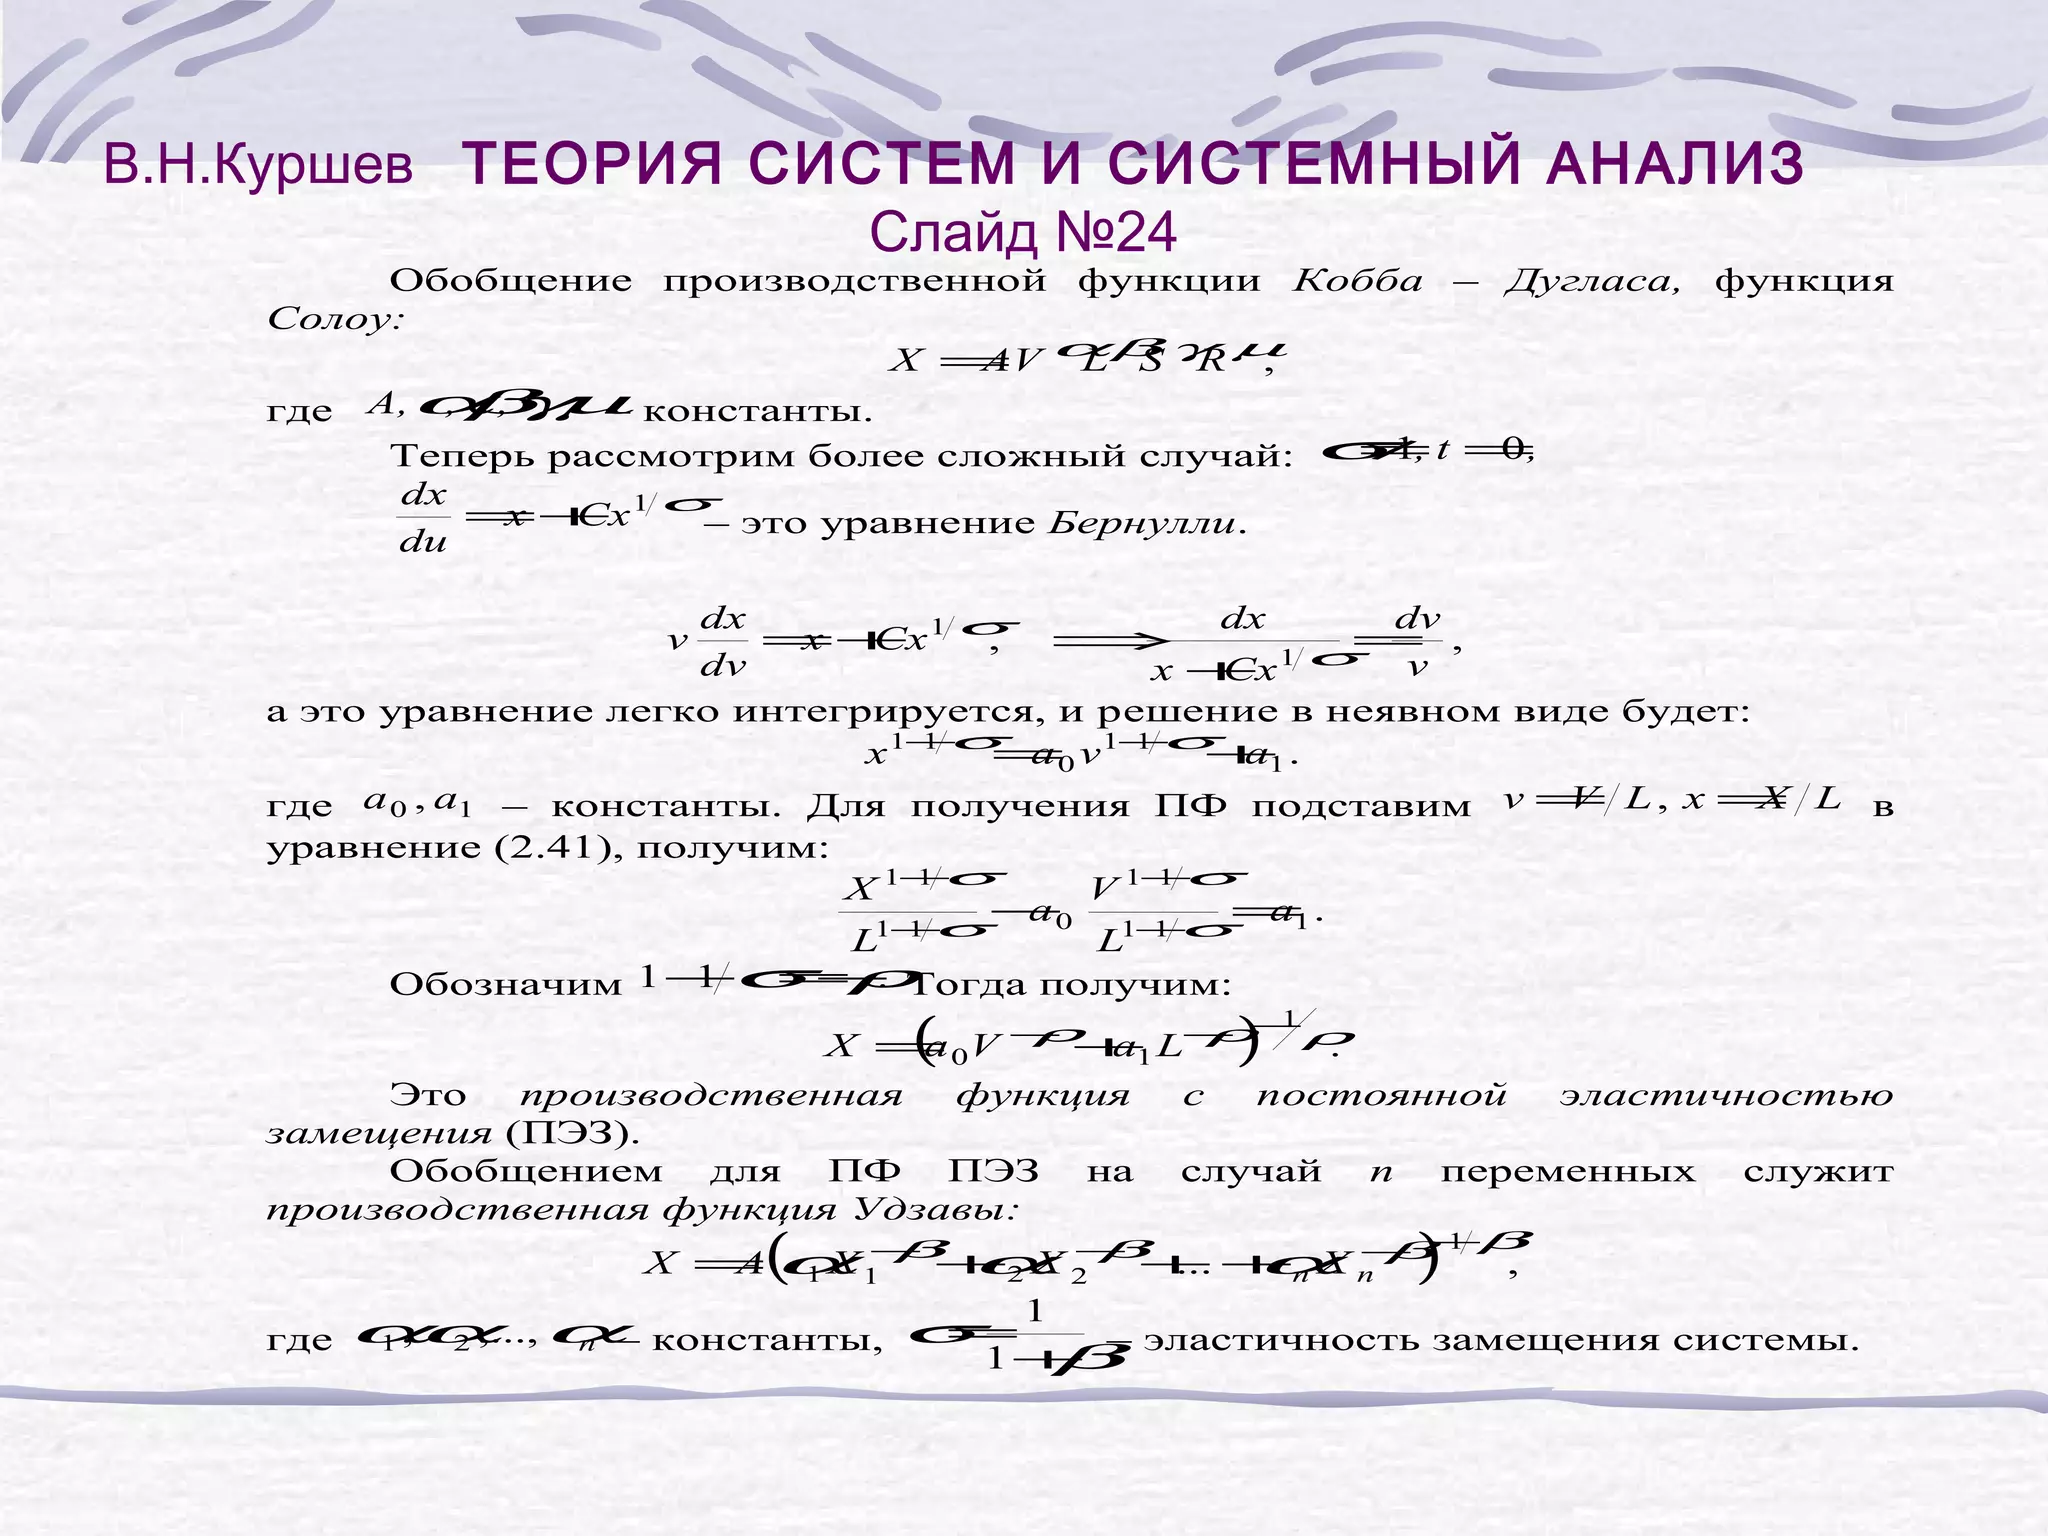 В.Н.Куршев ТЕОРИЯ СИСТЕМ И СИСТЕМНЫЙ АНАЛИЗ
Слайд №24
Обобщение производственной функции Кобба – Дугласа, функция
Солоу:
X = AV^α L^β S^γ R^μ,
где A, α, β, γ, μ – константы.
Теперь рассмотрим более сложный случай: σ ≠ 1, t = 0,
dx/du = x + Cx^{1/σ} – это уравнение Бернулли.
v dx/dv = x + Cx^{1/σ}, ⟹ dx/(x + Cx^{1/σ}) = dv/v,
а это уравнение легко интегрируется, и решение в неявном виде будет:
x^{1−1/σ} = a₀v^{1−1/σ} + a₁.
где a₀, a₁ – константы. Для получения ПФ подставим v = V/L, x = X/L в
уравнение (2.41), получим:
X^{1−1/σ}/L^{1−1/σ} − a₀ V^{1−1/σ}/L^{1−1/σ} = a₁.
Обозначим 1 − 1/σ = −ρ. Тогда получим:
X = (a₀V^{−ρ} + a₁L^{−ρ})^{−1/ρ}.
Это производственная функция с постоянной эластичностью
замещения (ПЭЗ).
Обобщением для ПФ ПЭЗ на случай n переменных служит
производственная функция Удзавы:
X = A(α₁X₁^{−β} + α₂X₂^{−β} + ... + αₙXₙ^{−β})^{−1/β},
где α₁, α₂, ..., αₙ – константы, σ = 1/(1 + β) – эластичность замещения системы.